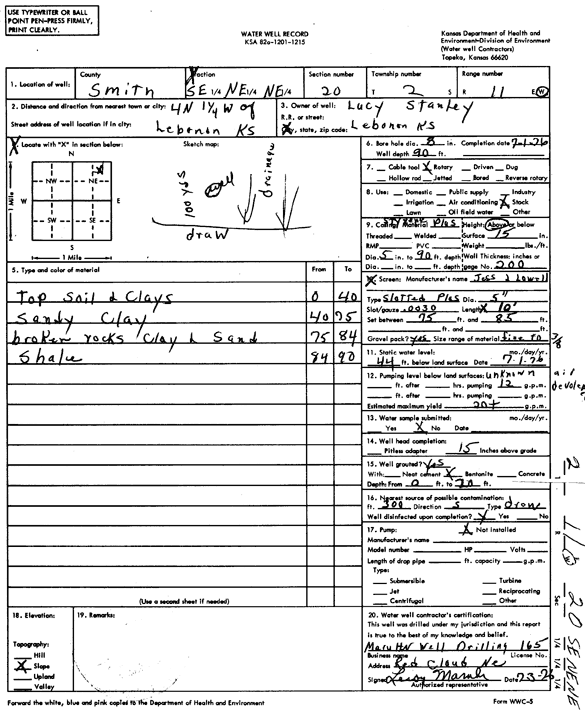 USE TYPEWRITER OR BALL
POINT PEN-PRESS FIRMLY,
PRINT CLEARLY.
WATER WELL RECORD
KSA 82a-1201-1215
Kansas Department of Health and
Environment-Division of Environment
(Water well Contractors)
Topeka, Kansas 66620
1. Location of well: County Smith Fraction SE 1/4 NE 1/4 NE 1/4 Section number 20 Township number T 2 S Range number R 11 E/W
2. Distance and direction from nearest town or city: 4N 1¼ W of
Street address of well location if in city: Lebonon KS
3. Owner of well: Lucy Stanley
R.R. or street:
City, state, zip code: Lebonon KS
X Locate with "X" in section below:
N
NW NE
W E
SW SE
S
1 Mile
1 Mile
Sketch map:
100 yds
well
drainage
draw
6. Bore hole dia. 8 in. Completion date 7-1-76
Well depth 90 ft.
7. Cable tool X Rotary Driven Dug
Hollow rod Jetted Bored Reverse rotary
8. Use: Domestic Public supply Industry
Irrigation Air conditioning X Stock
Lawn Oil field water Other
9. Casing: Material Plas Height: Above or below
Threaded Welded Surface 15 in.
RMP PVC Weight lbs./ft.
Dia. 5 in. to 90 ft. depth Wall Thickness: inches or
Dia. in. to ft. depth gage No. 200
5. Type and color of material From To
Top Soil & Clays 0 40
Sandy Clay 40 75
broken rocks Clay & Sand 75 84
Shale 84 90
(Use a second sheet if needed)
10. Screen: Manufacturer's name Jess & Lowell
Type Slotted Plas Dia. 5"
Slot/gauze .0030 Length 10'
Set between 75 ft. and 85 ft.
ft. and ft.
Gravel pack? yes Size range of material fine to 3/8
11. Static water level: mo./day/yr.
44 ft. below land surface Date 7-1-76
12. Pumping level below land surfaces: unknown
ft. after hrs. pumping 12 g.p.m.
ft. after hrs. pumping g.p.m.
Estimated maximum yield 20+ g.p.m.
air
13. Water sample submitted: mo./day/yr.
Yes X No Date
14. Well head completion:
Pitless adapter 15 Inches above grade
15. Well grouted? Yes
With: Neat cement X Bentonite Concrete
Depth: From 0 ft. to 20 ft.
16. Nearest source of possible contamination:
ft. 300 Direction S Type draw
Well disinfected upon completion? X Yes No
17. Pump: X Not installed
Manufacturer's name
Model number HP Volts
Length of drop pipe ft. capacity g.p.m.
Type:
Submersible Turbine
Jet Reciprocating
Centrifugal Other
18. Elevation:
Topography:
Hill
X Slope
Upland
Valley
19. Remarks:
20. Water well contractor's certification:
This well was drilled under my jurisdiction and this report
is true to the best of my knowledge and belief.
Well Drilling 165
Business name License No.
Address Red Cloud Ne
Signed Date 7-3-76
Authorized representative
2 11W 20 SE NE NE
Sec 1/4 1/4 1/4
Forward the white, blue and pink copies to the Department of Health and Environment
Form WWC-5